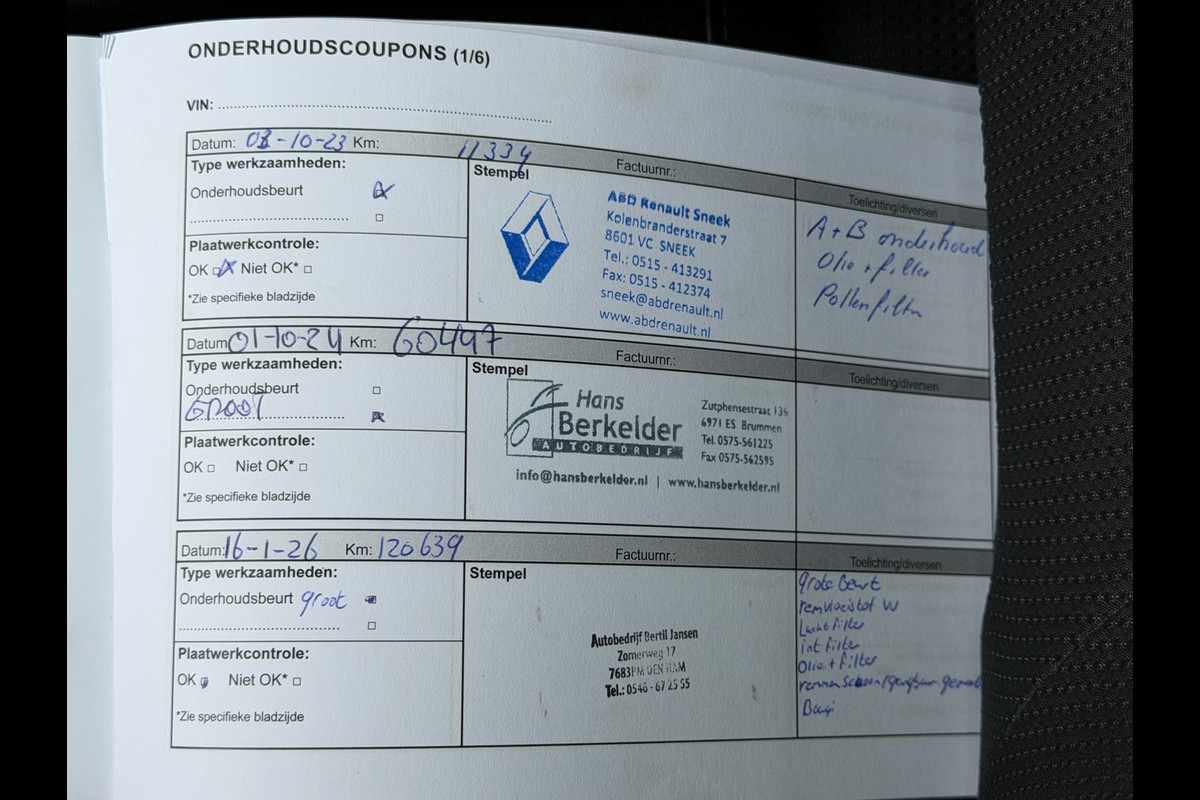 ONDERHOUDSCOUPONS (1/6)
VIN:
Datum: 03-10-23 Km: 11334
Factuurnr.:
Type werkzaamheden:
Onderhoudsbeurt
Plaatwerkcontrole:
OK Niet OK*
*Zie specifieke bladzijde
Stempel
ABD Renault Sneek
Kolenbranderstraat 7
8601 VC SNEEK
Tel.: 0515 - 413291
Fax: 0515 - 412374
sneek@abdrenault.nl
www.abdrenault.nl
Toelichting/diversen
A + B onderhoud
Olie + filter
Pollenfilter
Datum 01-10-24 Km: 60497
Factuurnr.:
Type werkzaamheden:
Onderhoudsbeurt
GROOT
Plaatwerkcontrole:
OK Niet OK*
*Zie specifieke bladzijde
Stempel
Hans
Berkelder
AUTOBEDRIJF
Zutphensestraat 136
6971 ES Brummen
Tel. 0575-561225
Fax 0575-562595
info@hansberkelder.nl | www.hansberkelder.nl
Toelichting/diversen
Datum: 16-1-26 Km: 120639
Factuurnr.:
Type werkzaamheden:
Onderhoudsbeurt groot
Plaatwerkcontrole:
OK Niet OK*
*Zie specifieke bladzijde
Stempel
Autobedrijf Bertil Jansen
Zomerweg 17
7683PM DEN HAM
Tel.: 0546 - 67 25 55
Toelichting/diversen
grote beurt
remvloeistof VV
Luchtfilter
int filter
Olie + filter
remmen